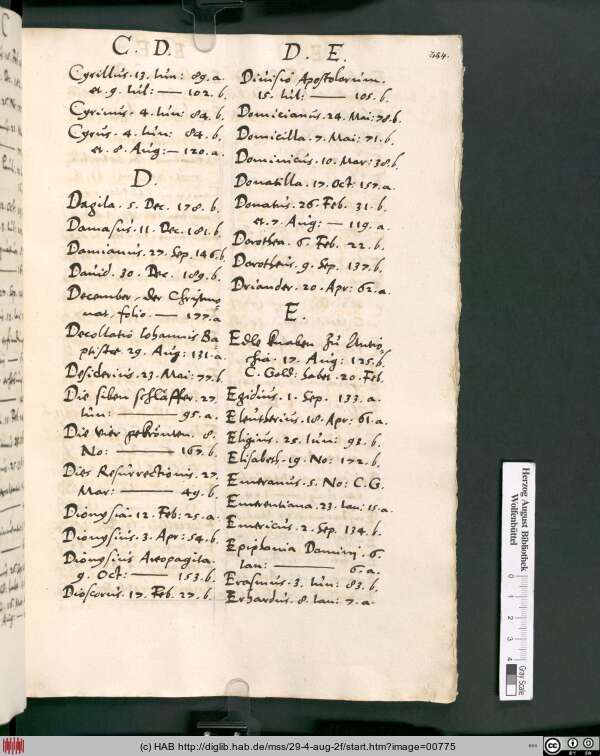 C. D.
Cyrillus. 13. Iun: 89. a.
et. 9. Iul: — 102. b.
Cyrinus. 4. Iun: 84. b.
Cyrus. 4. Iun: 84. b.
et. 8. Aug: — 120. a.
D.
Dagila. 5. Dec. 178. b.
Damasus. 11. Dec. 181. b.
Damianus. 27. Sep. 146. b.
Dauid. 30. Dec. 189. b.
December, der Christmo
nat, folio. — 177. a
Decollatio Iohannis Ba
ptistae 29. Aug: 131. a.
Desiderius. 23. Mai: 77. b.
Die siben schläffer. 27.
Iun: — 95. a.
Die vier gekrönten. 8.
No: — 167. b.
Dies Resurrectionis. 27.
Mar: — 49. b.
Dionysia. 12. Feb: 25. a.
Dionysius. 3. Apr: 54. b.
Dionysius Areopagita.
9. Oct: — 153. b.
Dioscorus. 17. Feb. 27. b.
D. E.
Diuisio Apostolorum.
15. Iul: — 105. b.
Domicianus. 24. Mai: 78. b.
Domicilla. 7. Mai: 71. b.
Dominicus. 10. Mar: 38. b.
Donatilla. 17. Oct: 157. a.
Donatus. 26. Feb. 31. b.
et. 7. Aug: — 119. a.
Dorothea. 6. Feb. 22. b.
Dorotheus. 9. Sep. 137. b.
Driander. 20. Apr: 62. a.
E.
Edle knaben zu Antio
chia. 17. Aug: 125. b.
C. Gold: habet. 20. Feb.
Egidius. 1. Sep. 133. a.
Eleutherius. 18. Apr: 61. a.
Eligius. 25. Iun: 93. b.
Elisabeth. 19. No: 172. b.
Emeranus. 5. No: C. G.
Emerentiana. 23. Ian: 15. a.
Emericus. 2. Sep. 134. b.
Epiphania Domini. 6.
Ian: — 6. a.
Erasmus. 3. Iun: 83. b.
Erhardus. 8. Ian: 7. a.
Herzog August Bibliothek
Wolfenbüttel
0 1 2 3 4
Gray Scale
(c) HAB http://diglib.hab.de/mss/29-4-aug-2f/start.htm?image=00775
CC BY SA